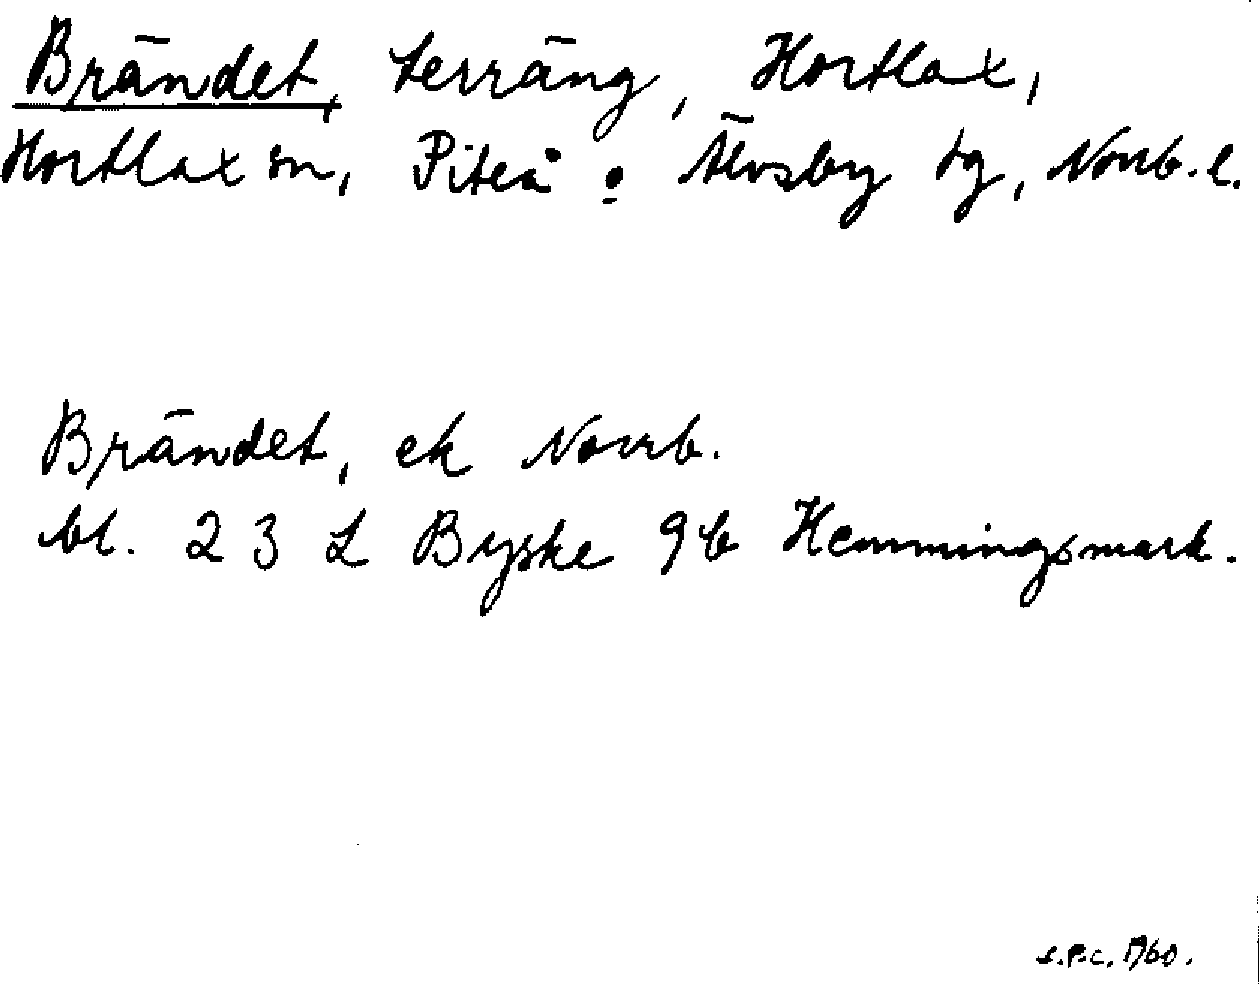 Brändet, terräng, Hortlax,
Hortlax sn, Piteå o Älvsby tg, Norrb. l.
Brändet, ek Norrb.
bl. 23 L Byske 9b Hemmingsmark.
1960.